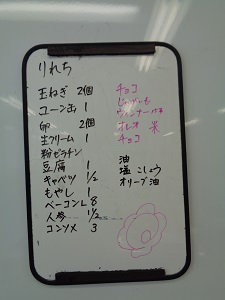 りれち
玉ねぎ 2個
コーン缶 1
卵 2個
生クリーム 1
粉ゼラチン
豆腐 1
キャベツ 1/2
もやし 1
ベーコンL 8
人参 1/2
コンソメ 3
チョコ
じゃがいも
ウィンナー
オレオ 米
チョコ
油
塩こしょう
オリーブ油